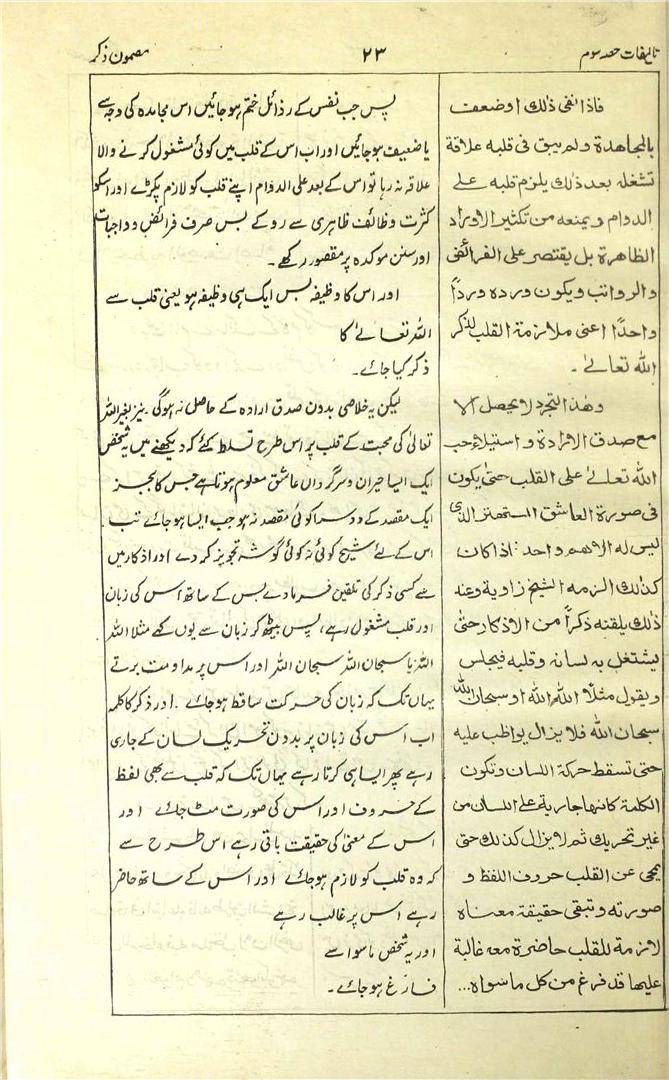 تالیفات حصہ سوم
۲۳
مضمون ذکر
فاذا نفى ذلك او ضعف
بالمجاهدة ولم يبق فى قلبه علاقة
تشغله بعد ذلك يلزم قلبه على
الدوام ويمنعه من تكثير الاوراد
الظاهرة بل يقتصر على الفرائض
والرواتب ويكون ورده وردًا
واحدًا اعنى ملازمة القلب لذكر
الله تعالىٰ ۔
وهذا التجرد لا يحصل الا
مع صدق الارادة و استيلاء حب
الله تعالىٰ على القلب حتىٰ يكون
فى صورة العاشق المستهتر الذى
ليس له الا هم واحد : اذا كان
كذلك الزمه الشيخ زاوية وعند
ذلك يلقنه ذكراً من الاذكار حتىٰ
يشتغل به لسانه وقلبه فيجلس
ويقول مثلًا الله الله او سبحان الله
سبحان الله فلا يزال يواظب عليه
حتى تسقط حركة اللسان وتكون
الكلمة كانها جارية على اللسان من
غير تحريك ثم لا يزال كذلك حتى
يمحى عن القلب حروف اللفظ و
صورته وتبقى حقيقة معناه
لازمة للقلب حاضرة معه غالبة
عليها قد فرغ من كل ما سواه...
پس جب نفس کے رذائل ختم ہو جائیں اس مجاہدہ کی وجہ سے
یا ضعیف ہو جائیں اور اب اس کے قلب میں کوئی مشغول کرنے والا
علاقہ نہ رہا تو اس کے بعد علی الدوام اپنے قلب کو لازم پکڑے اور اسکو
کثرت وظائف ظاہری سے روکے بس صرف فرائض و واجبات
اور سنن موکدہ پر مقصور رکھے ۔
اور اس کا وظیفہ بس ایک ہی وظیفہ ہو یعنی قلب سے
اللہ تعالےٰ کا
ذکر کیا جائے ۔
لیکن یہ خلاصی بدون صدق ارادہ کے حاصل نہ ہوگی نیز بغیر اللہ
تعالیٰ کی محبت کے قلب پر اس طرح تسلط کئے کہ دیکھنے میں یہ شخص
ایک ایسا حیران و سرگرداں عاشق معلوم ہوتا ہے جس کا بجز
ایک مقصد کے دوسرا کوئی مقصد نہ ہو جب ایسا ہو جائے تب
اس کے لئے شیخ کوئی نہ کوئی گوشہ تجویز کر دے اور اذکار میں
سے کسی ذکر کی تلقین فرما دے جس کے ساتھ اس کی زبان
اور قلب مشغول رہے ، پس بیٹھ کر زبان سے یوں کہے مثلاً اللہ
اللہ یا سبحان اللہ سبحان اللہ اور اس پر مداومت برتے
یہاں تک کہ زبان کی حرکت ساقط ہو جائے ۔ اور ذکر کا کلمہ
اب اس کی زبان پر بدون تحریک لسان کے جاری
رہے پھر ایسا ہی کرتا رہے یہاں تک کہ قلب سے بھی لفظ
کے حروف اور اس کی صورت مٹ جائے اور
اس کے معنیٰ کی حقیقت باقی رہے اس طرح سے
کہ وہ قلب کو لازم ہو جائے اور اس کے ساتھ حاضر
رہے اس پر غالب رہے
اور یہ شخص ماسوا سے
فارغ ہو جائے ۔